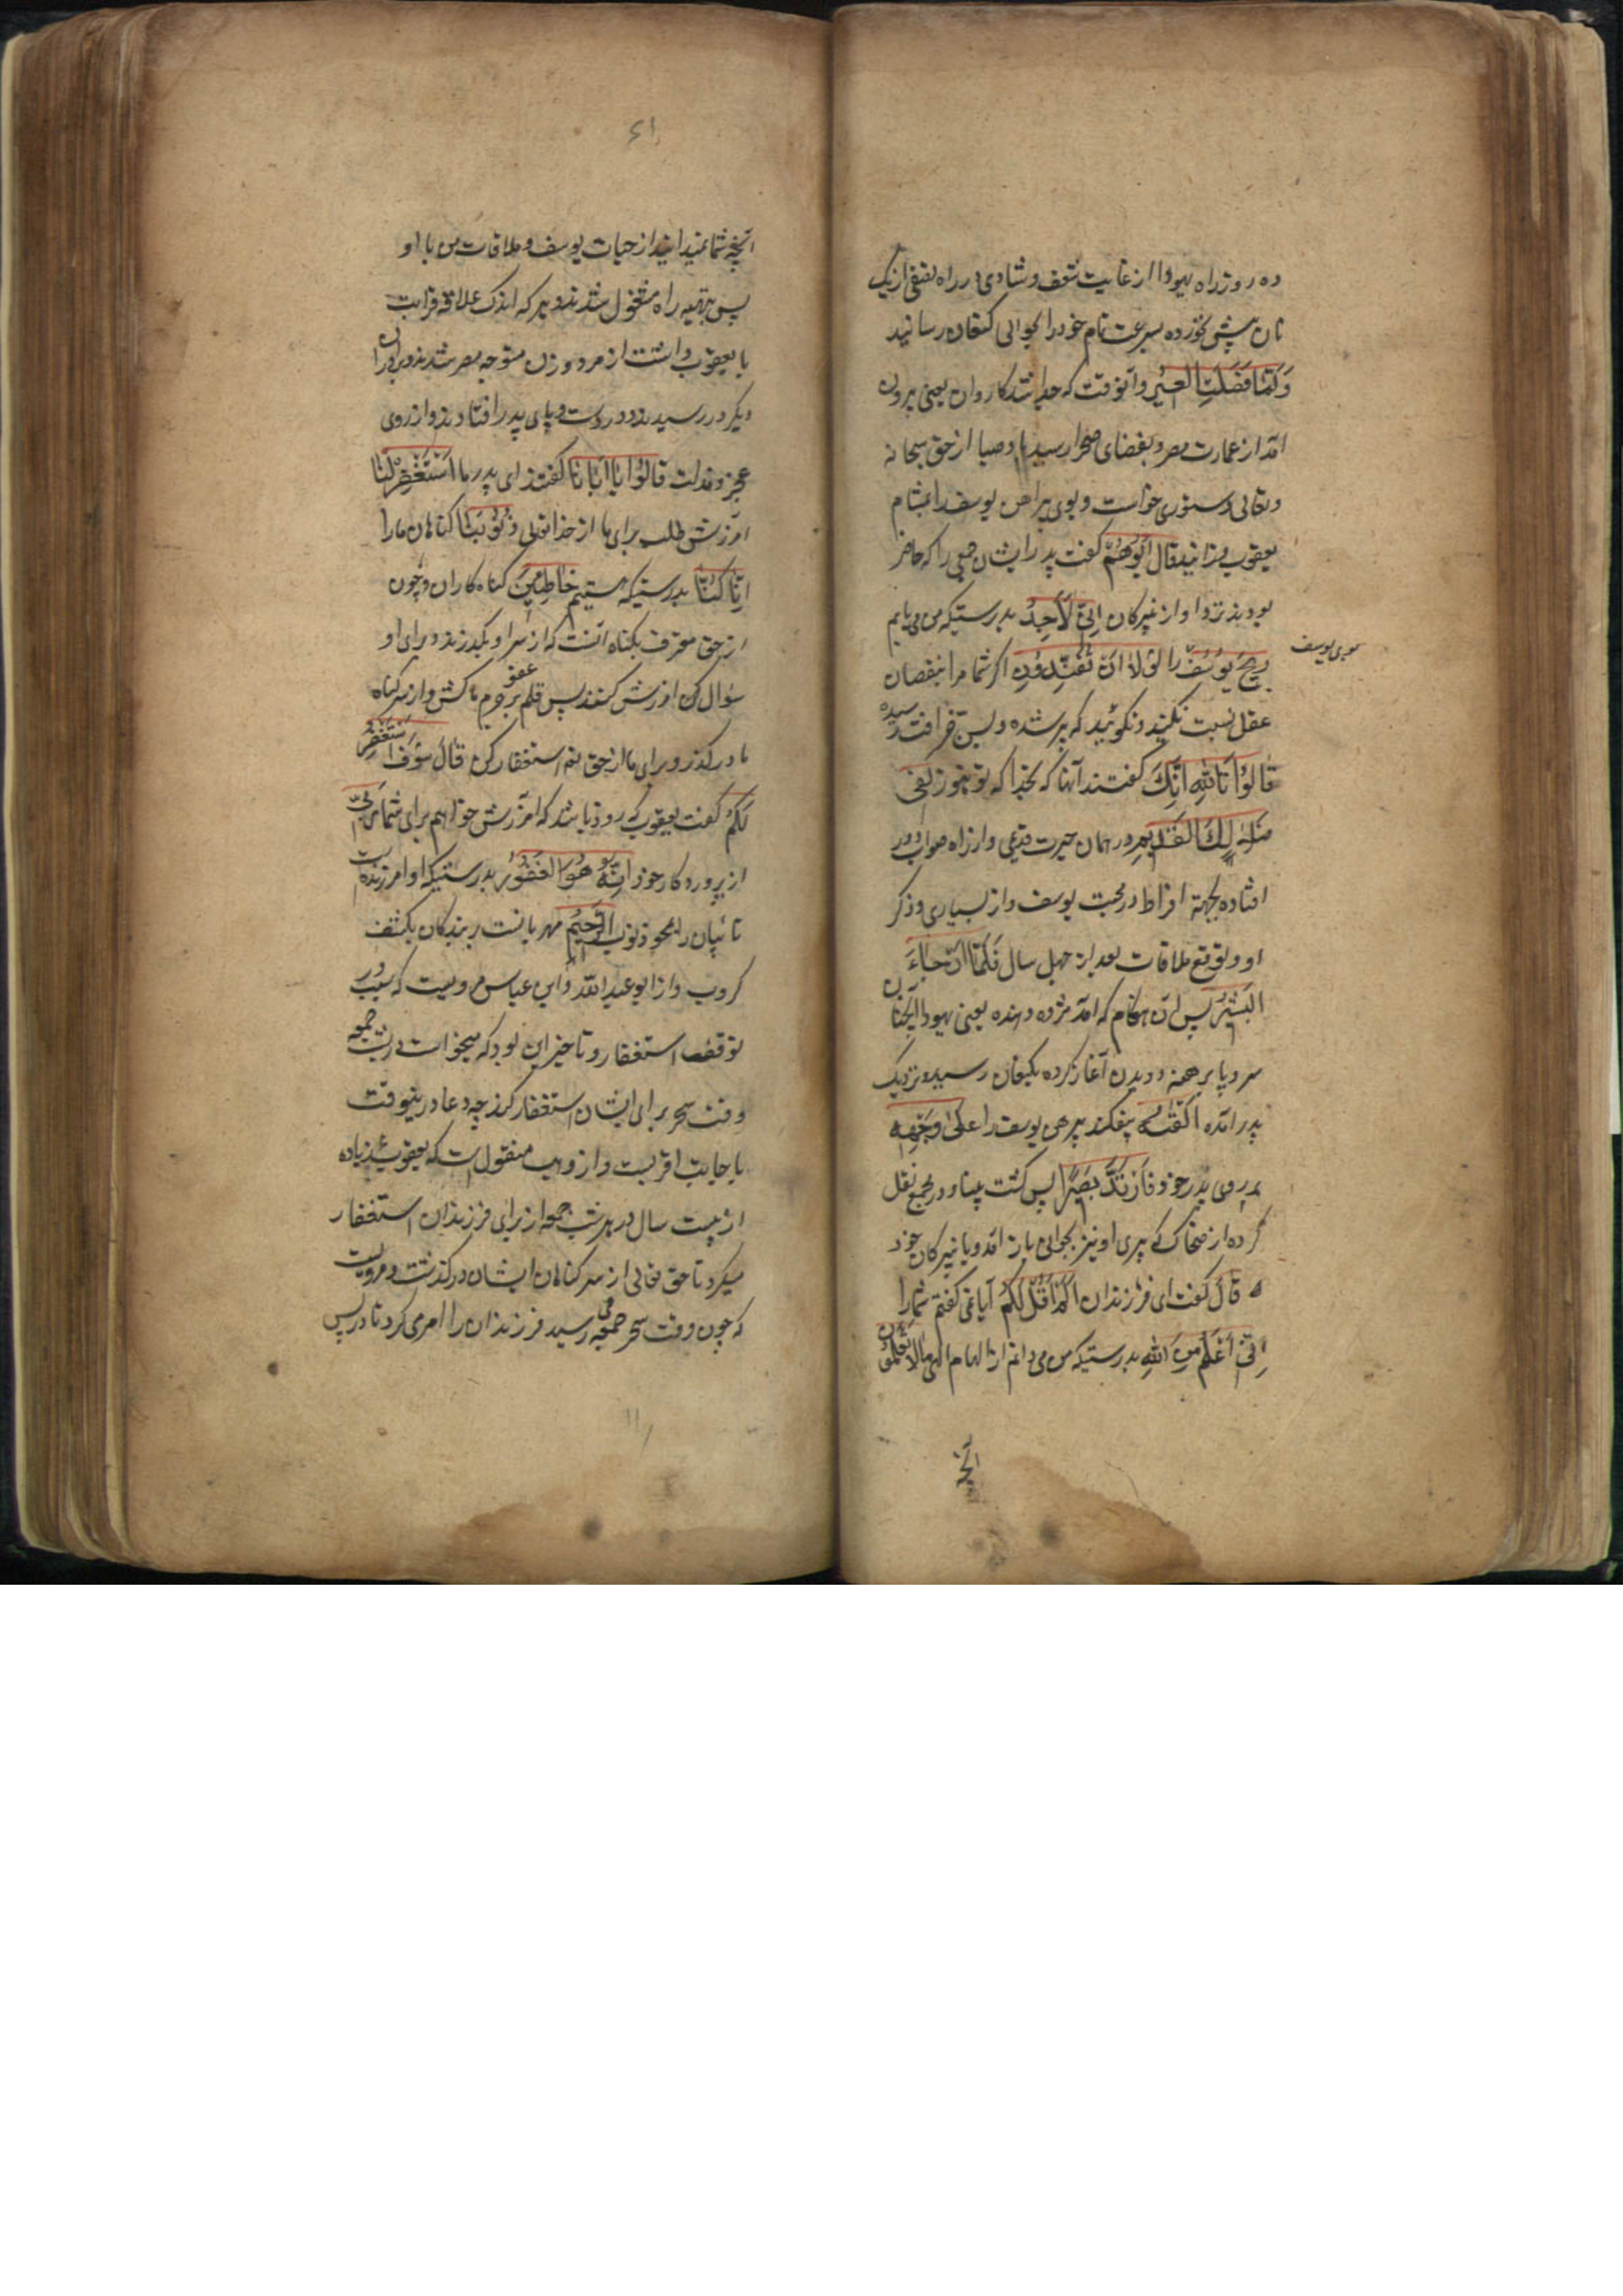 ده روز راه یهودا از غایت شعف و شادی در راه نصفی از یک
نان پیش نخورده بسرعت تمام خود را بحوالی کنعان رسانید
وَلَمَّا فَصَلَتِ الْعِیرُ و آنوقت که جدا شد کاروان یعنی بیرون
آمد از عمارت مصر و بفضای صحرا رسید باد صبا از حق سبحانه
وتعالی دستوری خواست و بوی پیراهن یوسف را بمشام
یعقوب رسانید قَالَ أَبُوهُمْ گفت پدر ایشان جمعی را که حاضر
بودند نزد او از نبیرکان إِنِّی لَأَجِدُ بدرستیکه من می یابم
بوی یوسف
رِیحَ یُوسُفَ را لَوْلَا أَنْ تُفَنِّدُونِ اگر شما مرا بنقصان
عقل نسبت نکنید و نگوئید که پیر شده و بسن خرافت رسیده
قَالُوا تَاللَّهِ إِنَّکَ گفتند آنها که بخدا که تو هنوز لَفِی
ضَلَالِکَ الْقَدِیمِ در همان حیرت قدیمی و از راه صواب دور
افتاده بجهة افراط در محبت یوسف و از بسیاری ذکر
او و توقع ملاقات بعد از چهل سال فَلَمَّا أَنْ جَاءَ
الْبَشِیرُ پس آن هنگام که آمد مژده دهنده یعنی یهودا
سر و پا برهنه دویدن آغاز کرده بکنعان رسید و نزدیک
پدر آمده أَلْقَاهُ بیفکند پیرهن یوسف را عَلَى وَجْهِهِ
بر روی پدر خود فَارْتَدَّ بَصِیرًا پس گشت بینا و در مجمع نقل
کرده از ضحاک که پیری او نیز بجوانی باز آمد و با نبیرکان خود
قَالَ گفت ای فرزندان أَلَمْ أَقُلْ لَکُمْ آیا نمی گفتم شما را
إِنِّی أَعْلَمُ مِنَ اللَّهِ بدرستیکه من می دانم از الهام الهی مَا لَا تَعْلَمُونَ
آنچه
۶۱
آنچه شما نمیدانید از حیات یوسف و ملاقات من با او
پس بتهیه راه مشغول شدند و هر که اندک علاقه قرابت
با یعقوب داشت از مرد و زن متوجه مصر شدند و برادران
دیگر در رسیدند و در دست و پای پدر افتادند و از روی
عجز و مذلت قَالُوا یَا أَبَانَا گفتند ای پدر ما اسْتَغْفِرْ لَنَا
آمرزش طلب برای ما از خدا تعالی ذُنُوبَنَا گناهان ما را
إِنَّا کُنَّا بدرستیکه هستیم خَاطِئِینَ گناه کاران و چون
از حق معترف بگناه آنست که از سر او بگذرند و برای او
سؤال آمرزش کنند پس قلم عفو بر جرم ما کش و از سر گناه
ما درگذر و برای ما از حق تعم استغفار کن قَالَ سَوْفَ أَسْتَغْفِرُ
لَکُمْ گفت یعقوب که زود باشد که آمرزش خواهم برای شما رَبِّی
از پروردگار خود إِنَّهُ هُوَ الْغَفُورُ بدرستیکه او آمرزنده است
تائبان را بمحو ذنوب الرَّحِیمُ مهربانست بر بندگان بکشف
کروب و از ابو عبدالله و ابن عباس مرویست که سبب در
توقف استغفار و تاخیر این بود که میخواست در شب جمعه
وقت سحر برای ایشان استغفار کرد چه دعا در ینوقت
باجابت اقربست و از وهب منقول است که یعقوب ع زیاده
از بیست سال در هر شب جمعه از برای فرزندان استغفار
میکرد تا حق تعالی از سر گناهان ایشان درگذشت و مرویست
که چون وقت سحر جمعه می رسید فرزندان را امر می کرد تا در پس